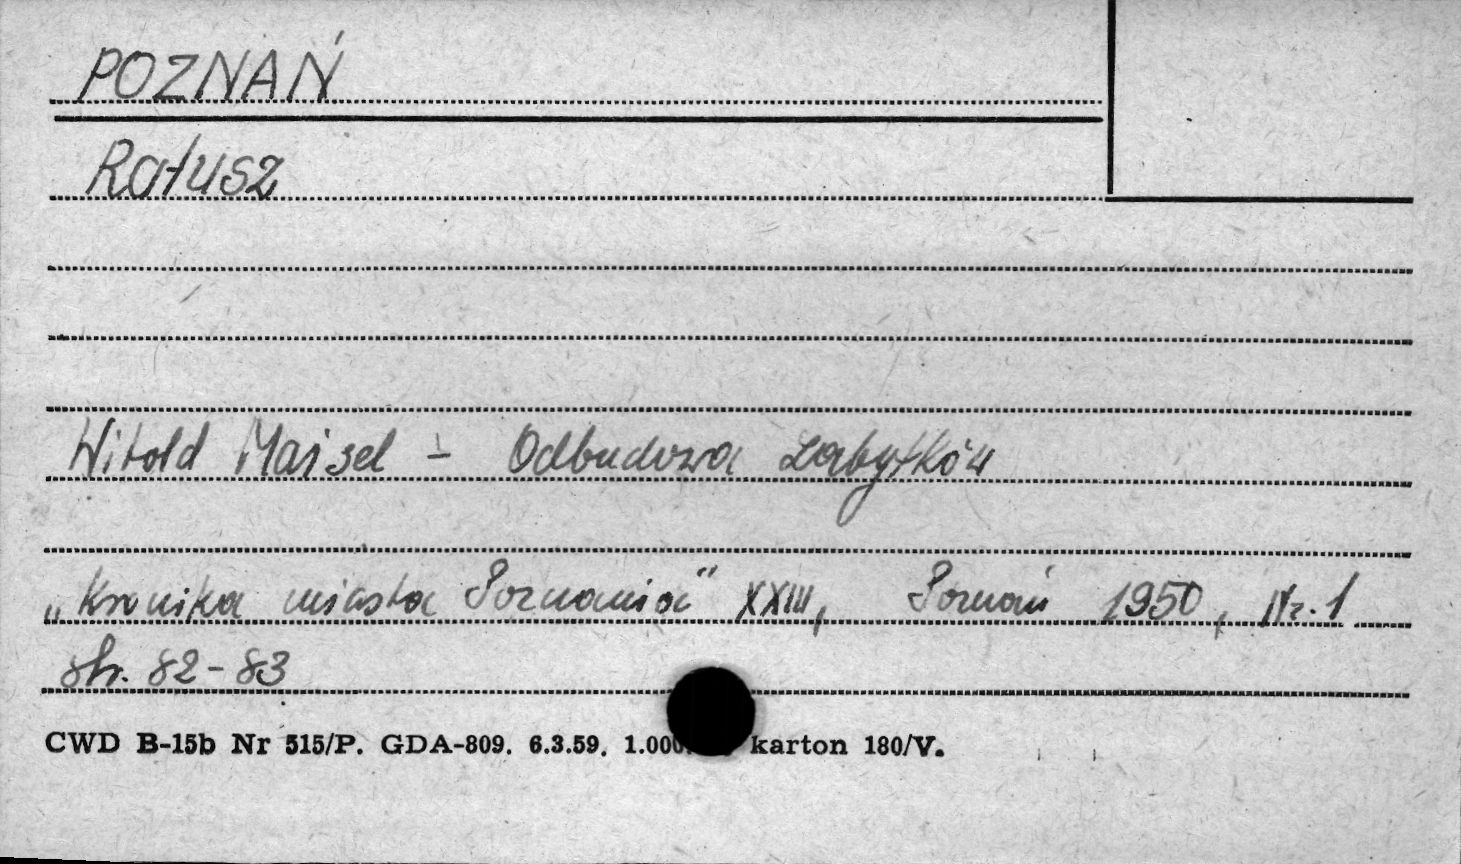 POZNAŃ
Ratusz
Witold Maisel - Odbudowa zabytków
„Kronika miasta Poznania" XXIII, Poznań 1950, Nr. 1
str. 82-83
CWD B-15b Nr 515/P. GDA-809. 6.3.59. 1.000. karton 180/V.